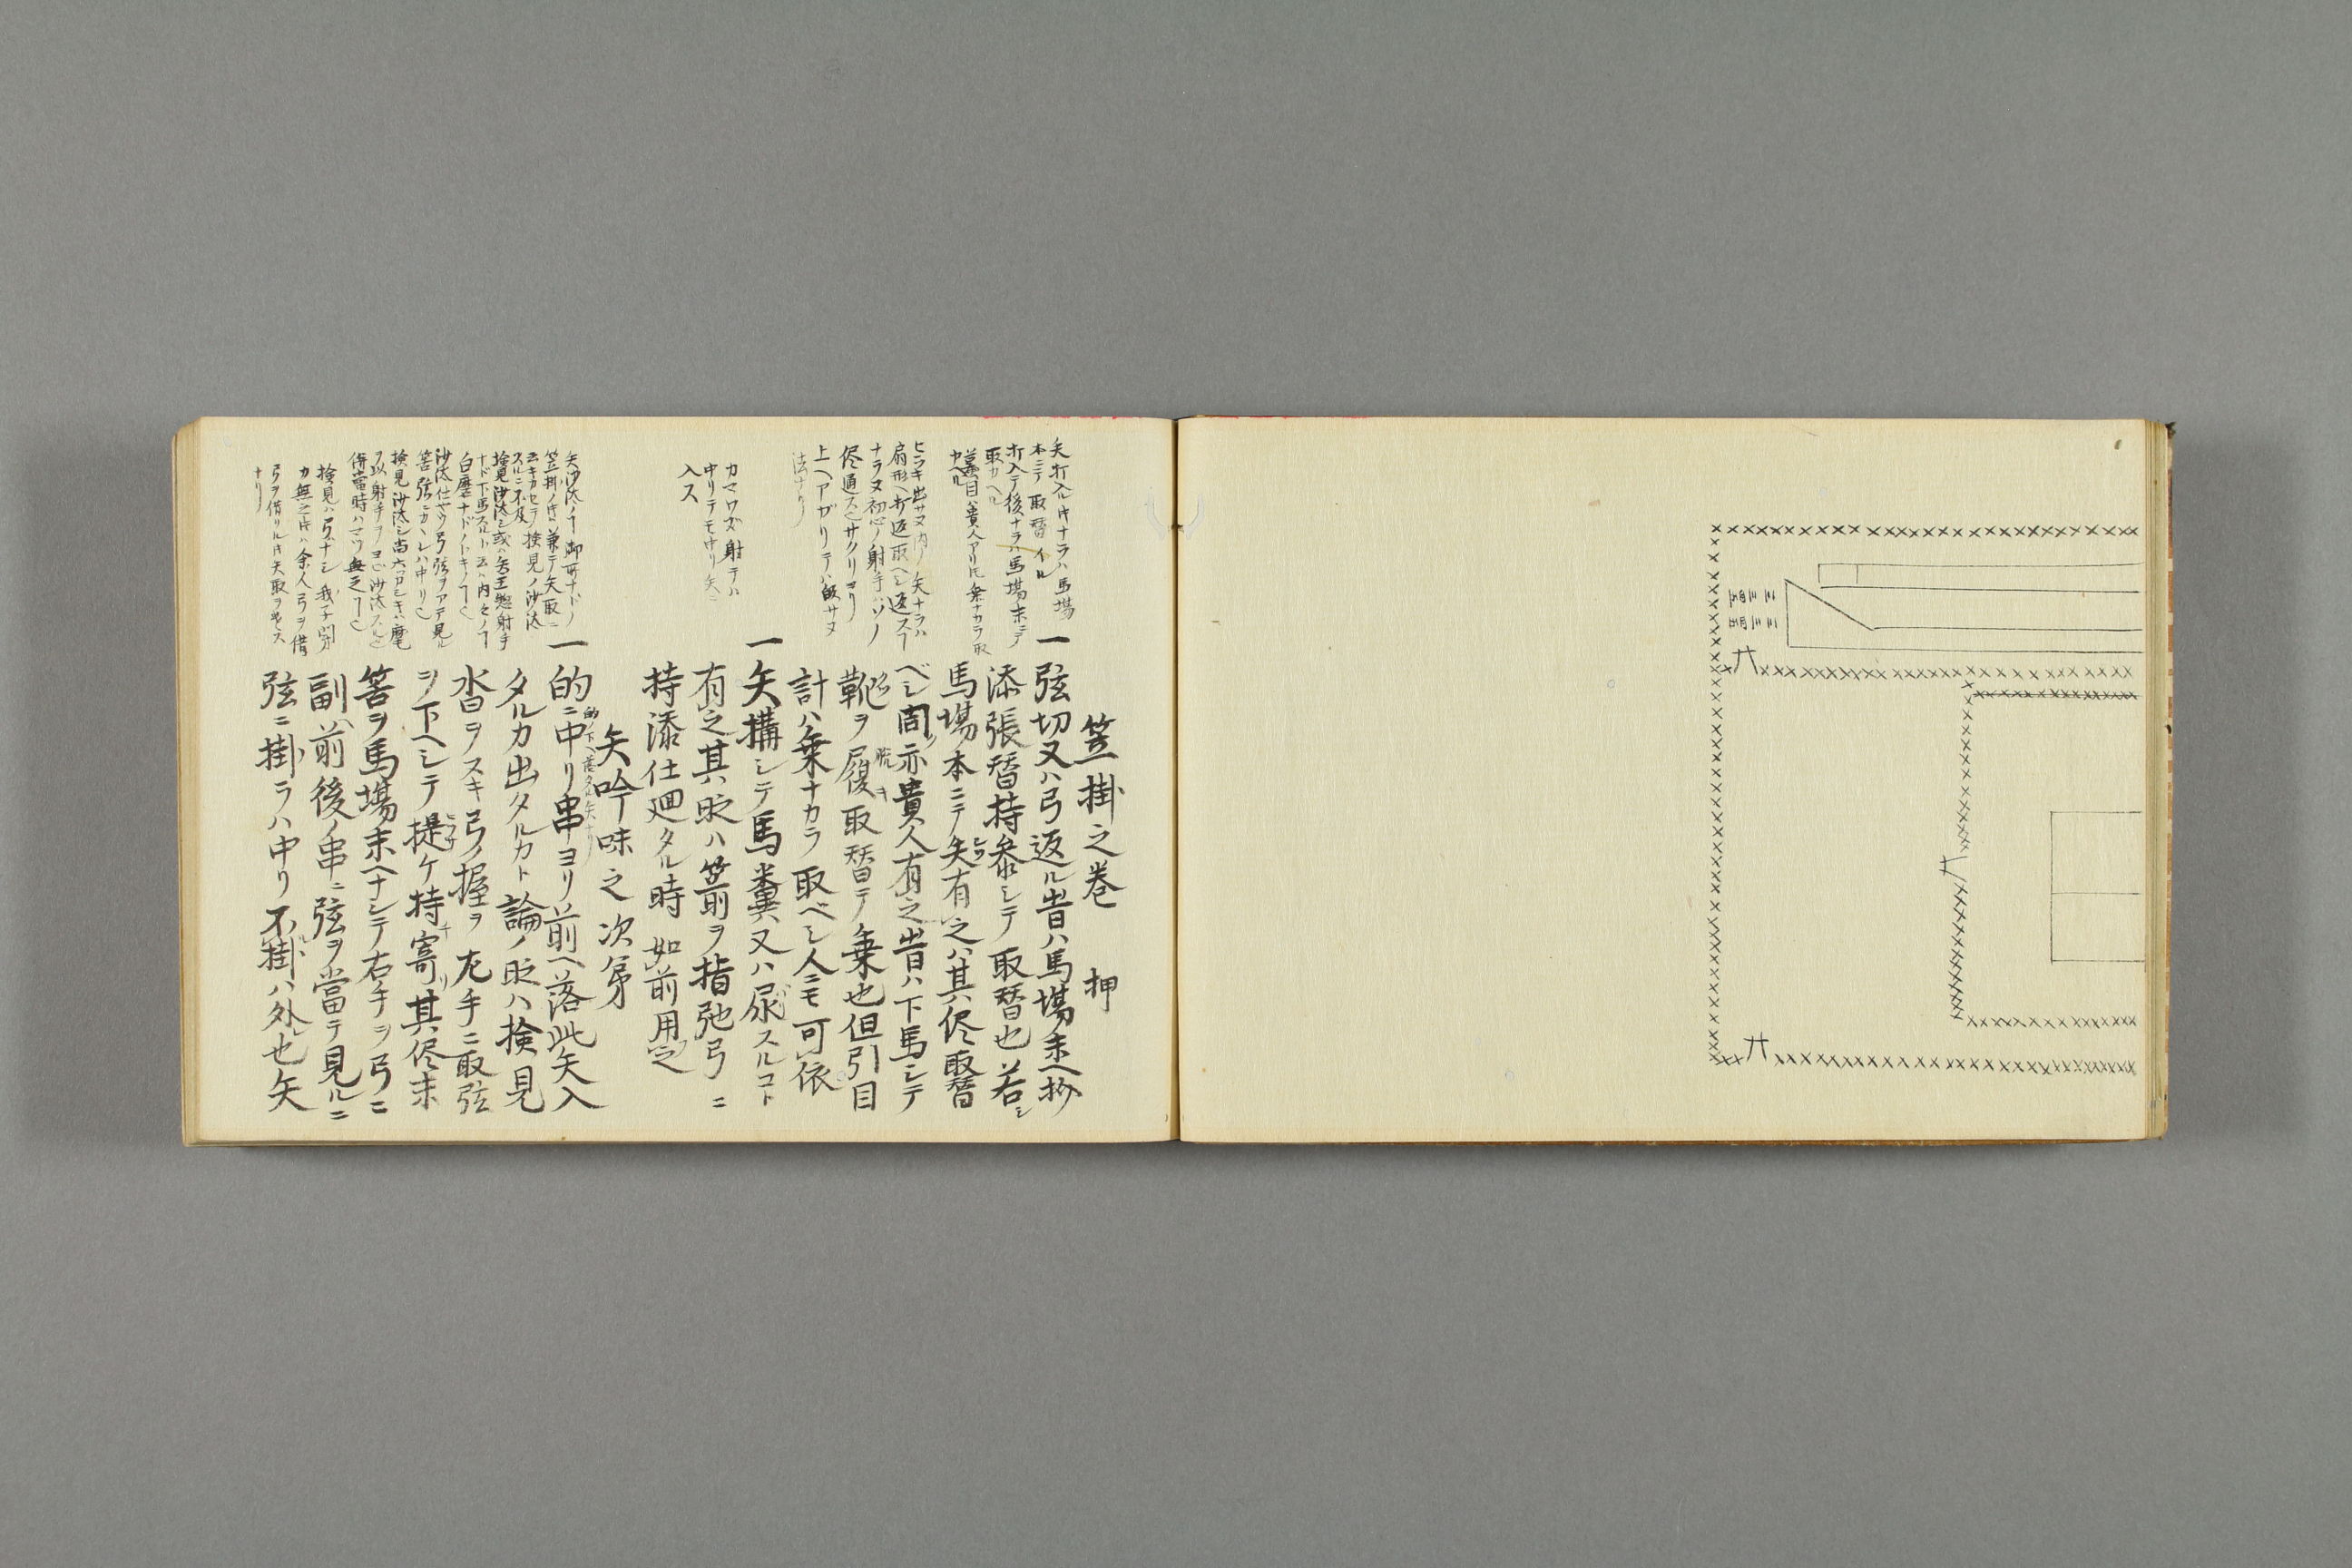 三三四五
三三四五
笠掛之巻 押
一弦切又ハ弓返ル時ハ馬場末ヘ抄
添張替持参シテ取替也若シ
馬場本ニテ矢有之ハ其侭取替
ベシ同示貴人有之時ハ下馬シテ
靴ヲ履取替テ乗也但引目
計ハ乗ナカラ取ベシ人ニモ可依
一矢搆シテ馬糞又ハ尿スルコト
有之其ハ箭ヲ指弛弓ニ
持添仕廻タル時如前用之
矢吟味之次第
一的ニ中リ串ヨリ前ヘ落此矢入
タルカ出タルカト論ノハ検見
沓ヲスキ弓ノ握ヲ左手ニ取弦
ヲ下ヘシテ提ケ持寄其侭末
筈ヲ馬場末ヘナシテ右手ヲ弓ニ
副前後ノ串ニ弦ヲ當テ見ルニ
弦ニ掛ラハ中リ不掛ハ外也矢
矢打入ル時ナラハ馬場
本ニテ取替イル
打入テ後ナラハ馬場末ニテ
取カヘル
蟇目ハ貴人アリ共乗ナカラ取
カヘル
ヒラキ出サヌ内ノ矢ナラハ
扇形ヘ打返取ヘシ返ス
ナラヌ初心ノ射手ハソノ
侭通スヘサクリヨリ
上ヘアガリテハ返サヌ
法ナリ
カマワズ射テハ
中リテモ中リ矢ニ
入ス
矢沙汰ノ御所ナドノ
笠掛ノ時ハ兼テ矢取ニ
云キカセテ検見ノ沙汰
スルニ不及
検見沙汰シ或ハ矢王惣射手
ナド下馬スルト云ハ内々ノ
白磨ナドノトキノ
沙汰仕ヤウ弓弦ヲアテ見ル
筈弦ニカヽレハ中リ
検見沙汰シ尚六ツシキハ麾
ヲ以射手ヲヨビ沙汰スル
侍當時ハマツ無之
検見ハ弓ナシ我子別
カ無之時ハ余人弓ヲ借
弓ヲ借リル時矢取ヲモス
ナリ